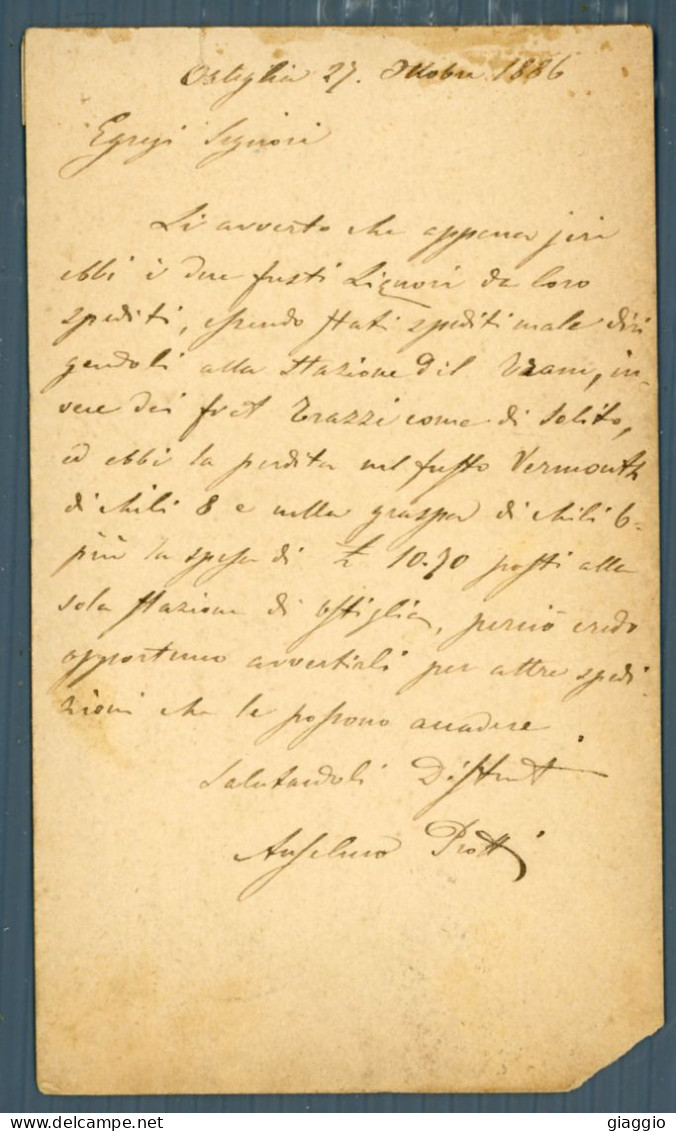 Ostiglia 27. Ottobre 1886
Egregi Signori
Li avverto che appena jeri
ebbi i due fusti Liquori da loro
spediti, essendo stati spediti male diri
gendoli alla Stazione del, in-
vece dei frat come di solito,
ed ebbi la perdita nel fusto Vermouth
di chili 8 e nella graspa di chili 6-
più la spesa di £ 10.70 posti alla
sola stazione di Ostiglia, perciò credo
opportuno avvertirli per altre spedi
zioni che le possono accadere.
Salutandoli Distint
Anselmo
giaggio